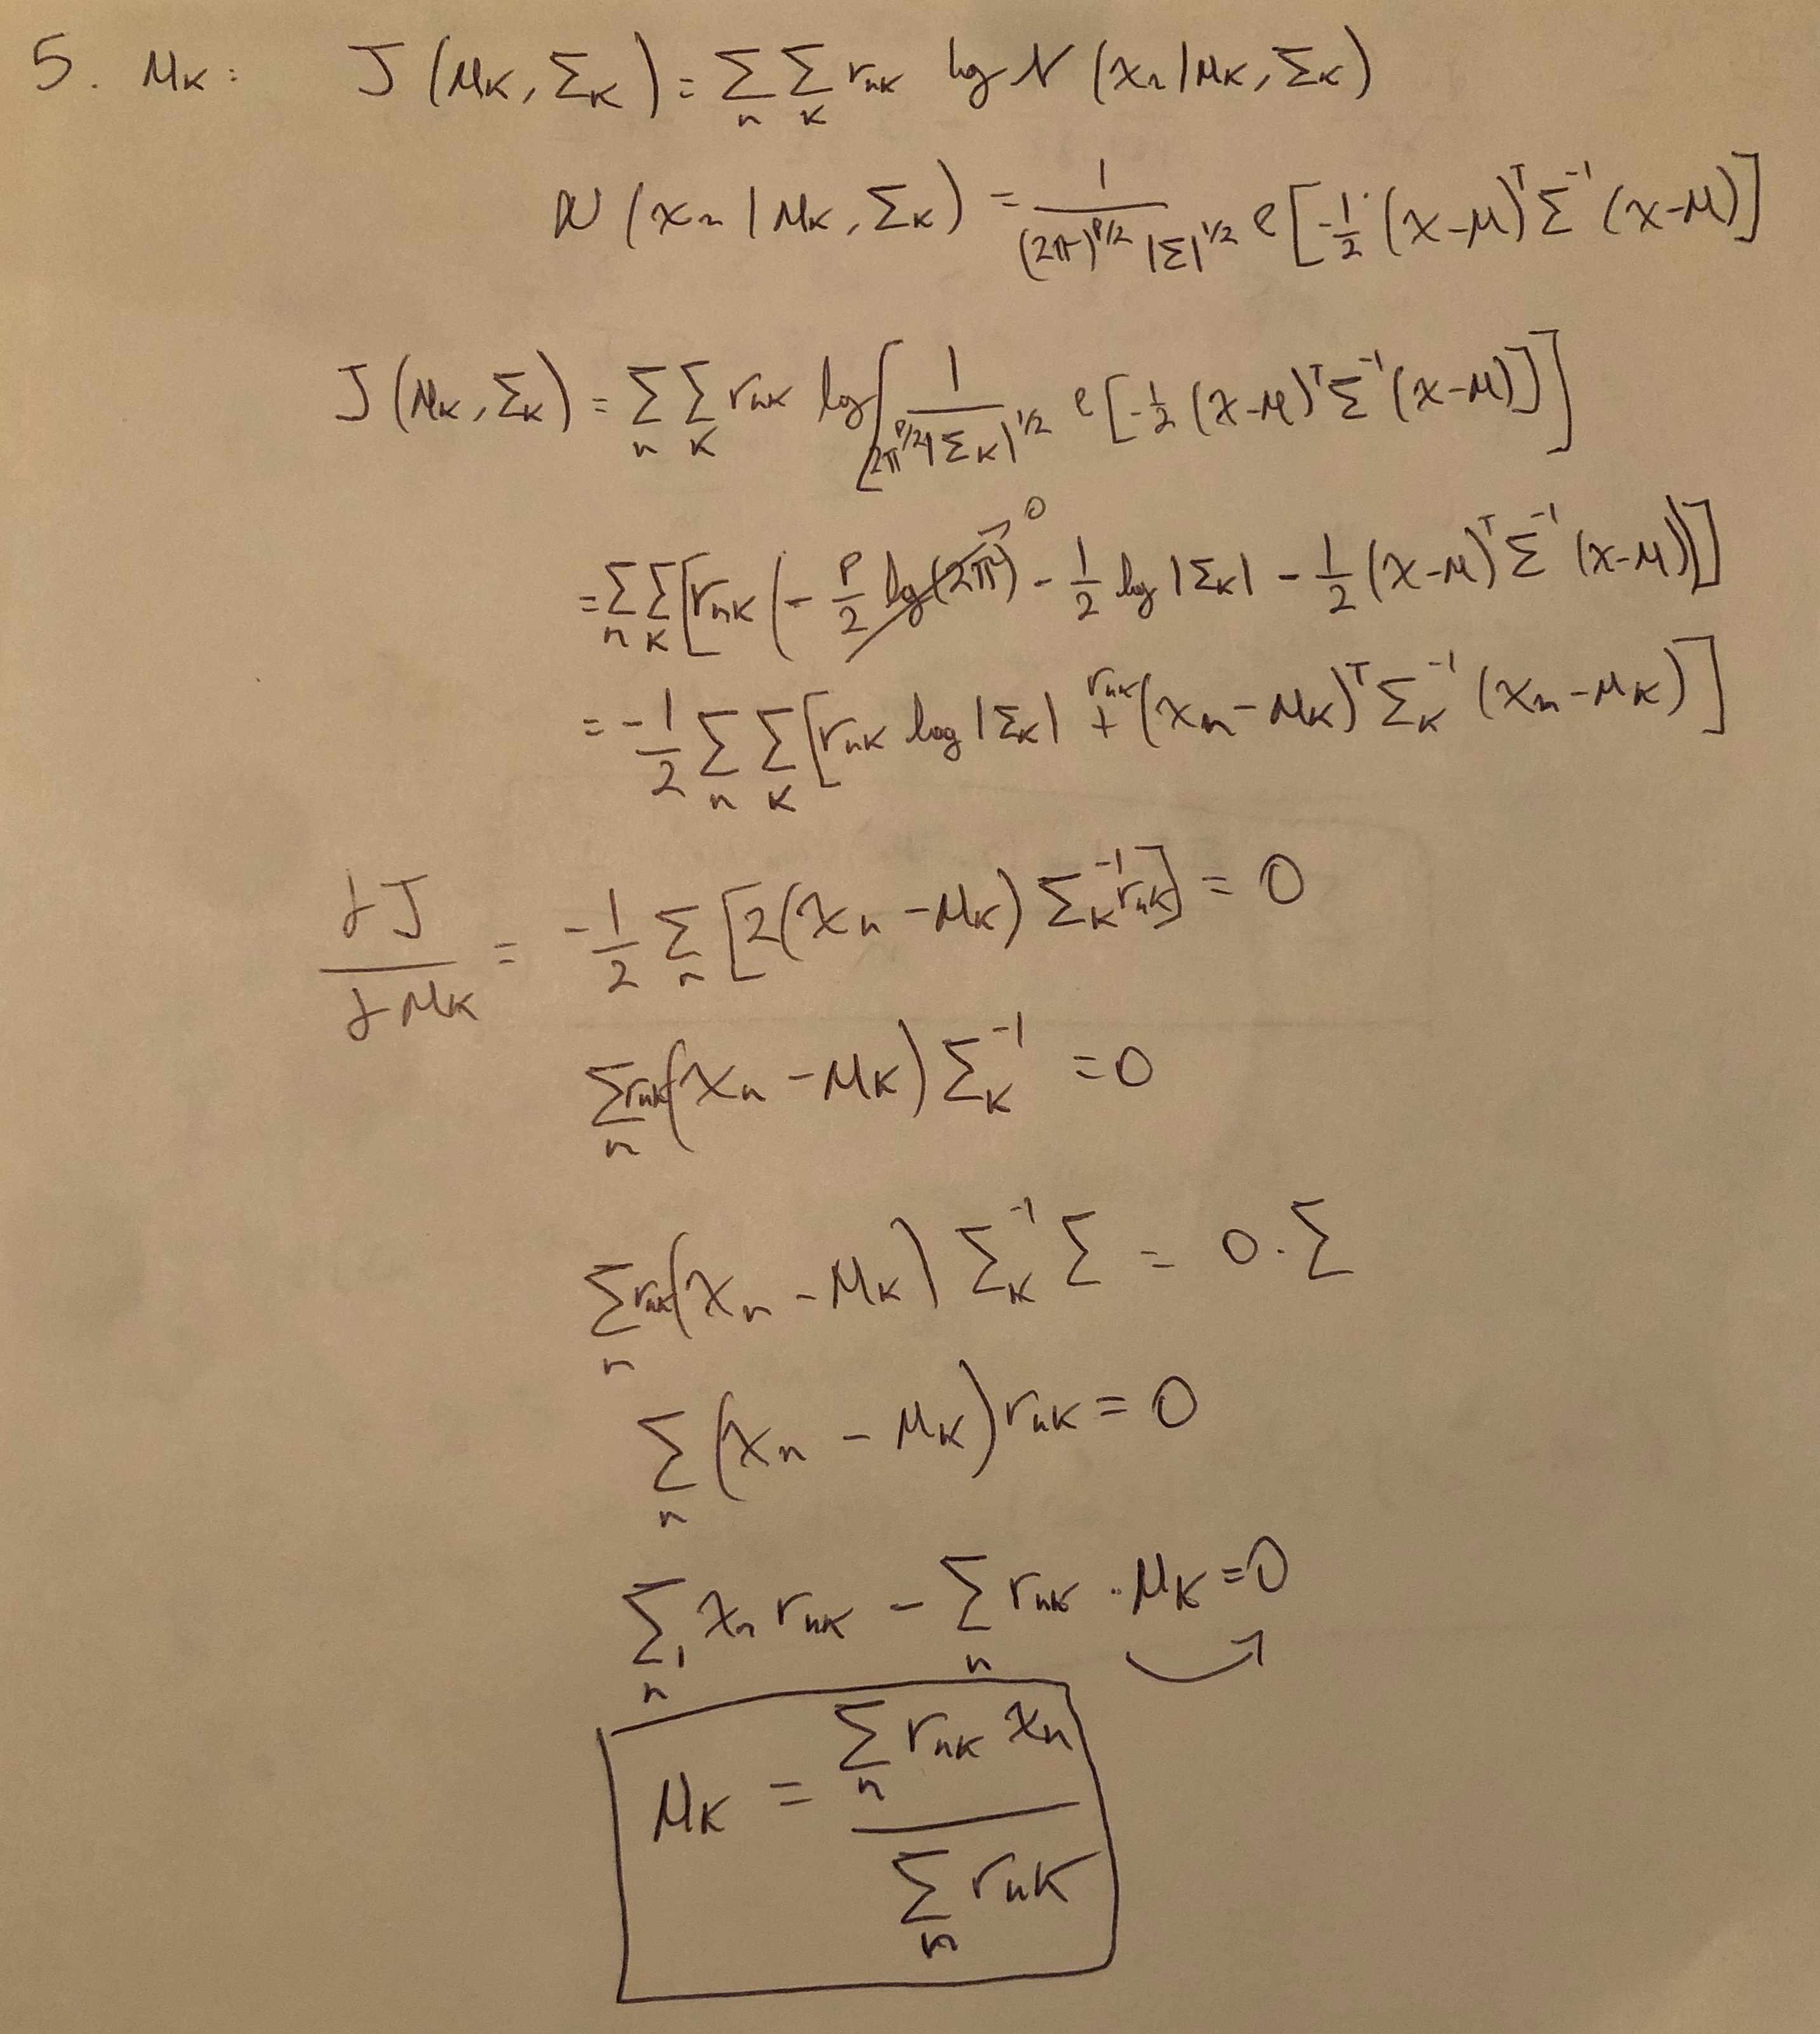 5. μ_K: J(μ_K, Σ_K) = Σ_n Σ_K r_nK log N(x_n | μ_K, Σ_K)
N(x_n | μ_K, Σ_K) = 1 / ((2π)^{P/2} |Σ|^{1/2}) e[-1/2 (x-μ)^T Σ^{-1} (x-μ)]
J(μ_K, Σ_K) = Σ_n Σ_K r_nK log[1 / (2π^{P/2} |Σ_K|^{1/2}) e[-1/2 (x-μ)^T Σ^{-1} (x-μ)]]
= Σ_n Σ_K [r_nK (- P/2 log(2π) → 0 - 1/2 log |Σ_K| - 1/2 (x-μ)^T Σ^{-1} (x-μ))]
= -1/2 Σ_n Σ_K [r_nK log |Σ_K| + r_nK (x_n - μ_K)^T Σ_K^{-1} (x_n - μ_K)]
∂J/∂μ_K = -1/2 Σ_n [2(x_n - μ_K) Σ_K^{-1} r_nK] = 0
Σ_n r_nK (x_n - μ_K) Σ_K^{-1} = 0
Σ_n r_nK (x_n - μ_K) Σ_K^{-1} Σ = 0 · Σ
Σ_n (x_n - μ_K) r_nK = 0
Σ_n x_n r_nK - Σ_n r_nK · μ_K = 0
μ_K = Σ_n r_nK x_n / Σ_n r_nK